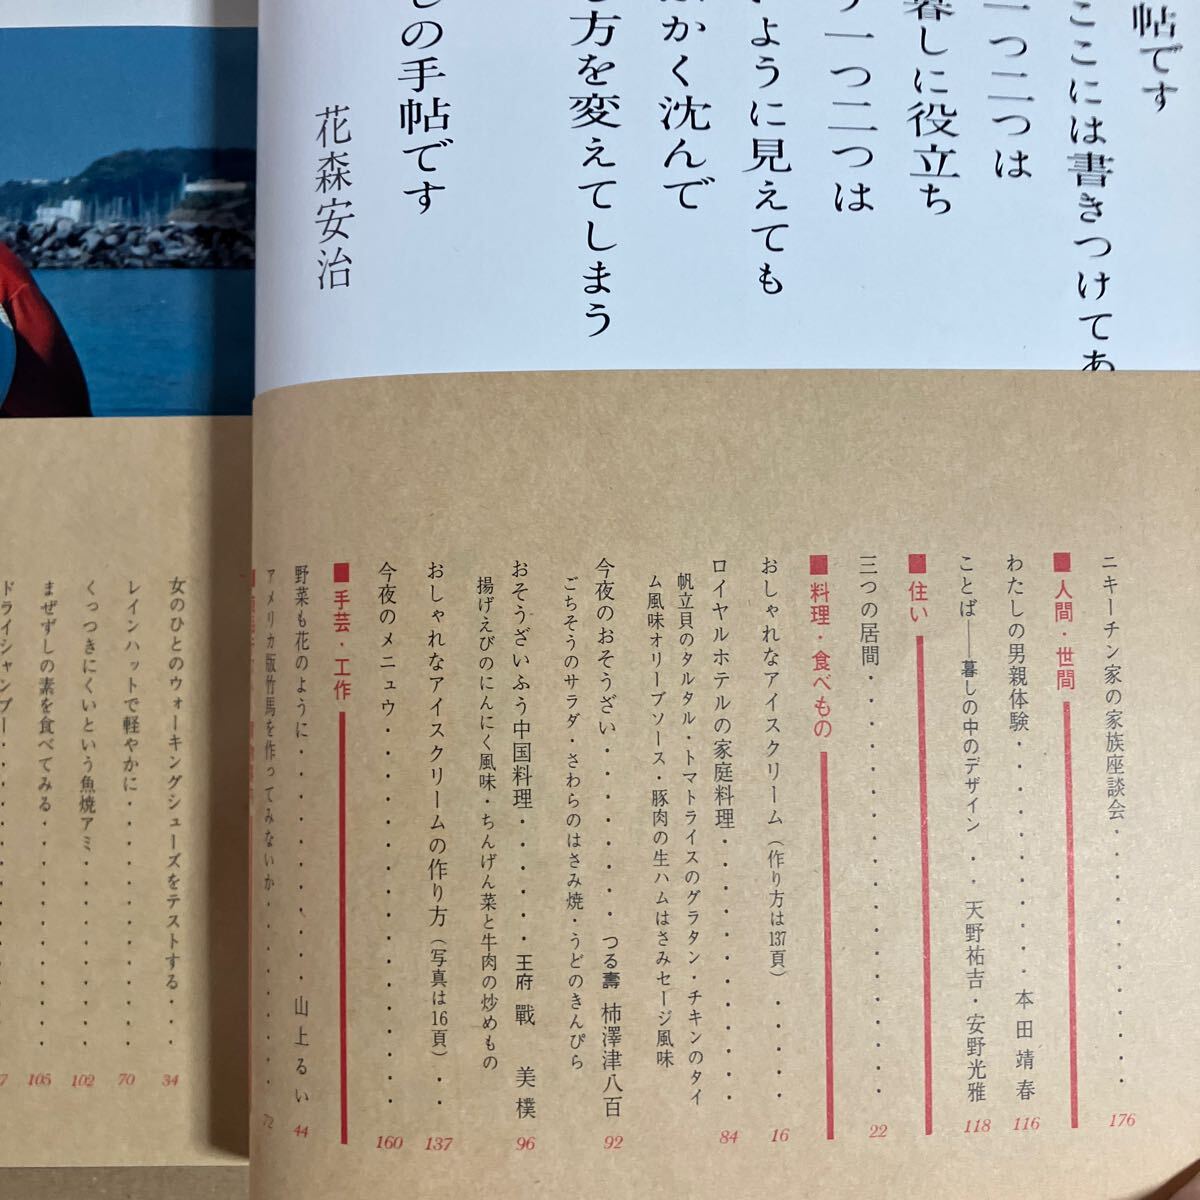 帖です
ここには書きつけてあ
一つ二つは
暮しに役立ち
一つ二つは
ように見えても
かく沈んで
し方を変えてしまう
しの手帖です
花森安治
ニキーチン家の家族座談会・・・・・・・・・・176
■人間・世間
わたしの男親体験・・・・・・・・・・本田靖春 116
ことば――暮しの中のデザイン・・天野祐吉・安野光雅 118
■住い
三つの居間・・・・・・・・・・22
■料理・食べもの
おしゃれなアイスクリーム（作り方は137頁）・・・・16
ロイヤルホテルの家庭料理・・・・・・・・・・84
帆立貝のタルタル・トマトライスのグラタン・チキンのタイ
ム風味オリーブソース・豚肉の生ハムはさみセージ風味
今夜のおそうざい・・・・・・つる壽 柿澤津八百 92
ごちそうのサラダ・さわらのはさみ焼・うどのきんぴら
おそうざいふう中国料理・・・・王府 戰 美樸 96
揚げえびのにんにく風味・ちんげん菜と牛肉の炒めもの
おしゃれなアイスクリームの作り方（写真は16頁）・・137
今夜のメニュウ・・・・・・・・・・160
■手芸・工作
野菜も花のように・・・・・・・・山上るい 44
アメリカ版竹馬を作ってみないか・・・・・・72
女のひとのウォーキングシューズをテストする・・・34
レインハットで軽やかに・・・・・・・・70
くっつきにくいという魚焼アミ・・・・・・102
まぜずしの素を食べてみる・・・・・・・・105
ドライシャンプー・・・・・・・・